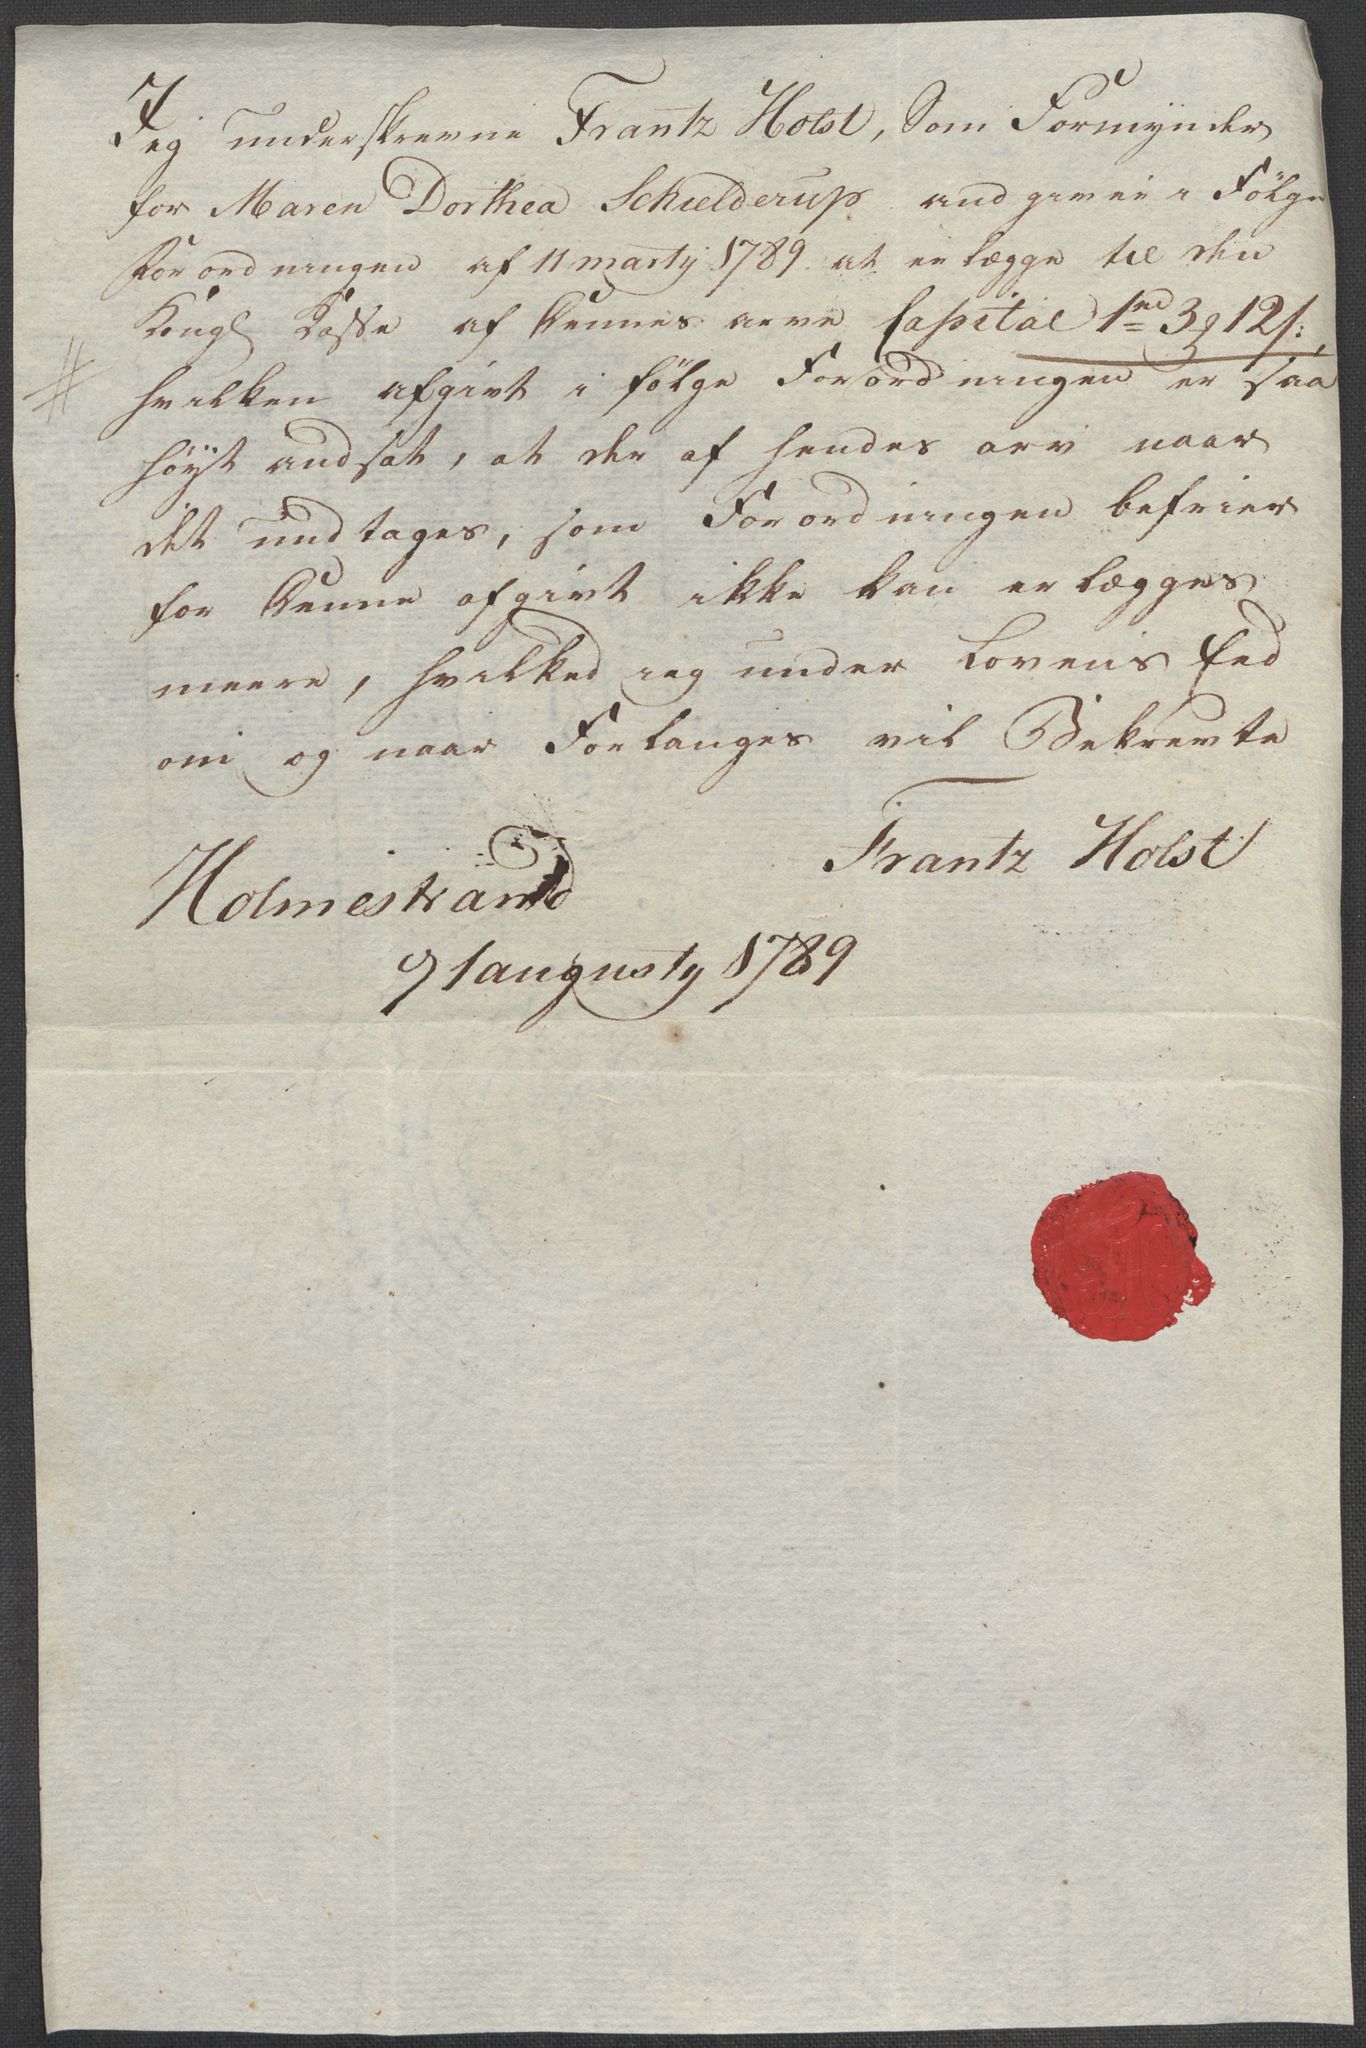 Jeg underskrevne Frantz Holst, Som Formynder
for Maren Dorthea Schielderup andgiver i Fölge
Forordningen af 11 marty 1789 at erlægge til den
Kongl Casse af dennes arve Capital 1 rd 3 12 s:,
hvilken afgivt i fölge Forordningen er saa
höyt andsat, at der af hendes arv naar
det undtages, som Forordningen befrier
for denne afgivt ikke kan erlægges
meere, hvilked ieg under Lovens Eed
om og naar Forlanges vil Bekrevte
Frantz Holst
Holmestrand
augusty 1789